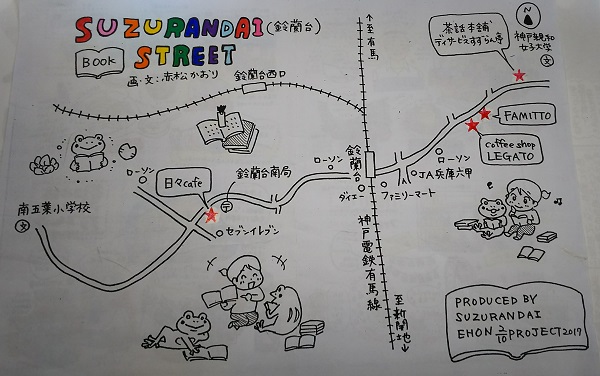 SUZURANDAI (鈴蘭台)
Book STREET
画・文:赤松かおり
↑至有馬
茶話本舗
デイサービスすずらん亭
N
神戸親和
女子大学
文
鈴蘭台西口
FAMITTO
coffee shop
LEGATO
ローソン
JA兵庫六甲
鈴蘭台
ローソン
ダイエー
ファミリーマート
鈴蘭台南局
〒
日々cafe
ローソン
セブンイレブン
南五葉小学校
文
神戸電鉄有馬線
至新開地↓
PRODUCED BY
SUZURANDAI
EHON 2/10 PROJECT 2017